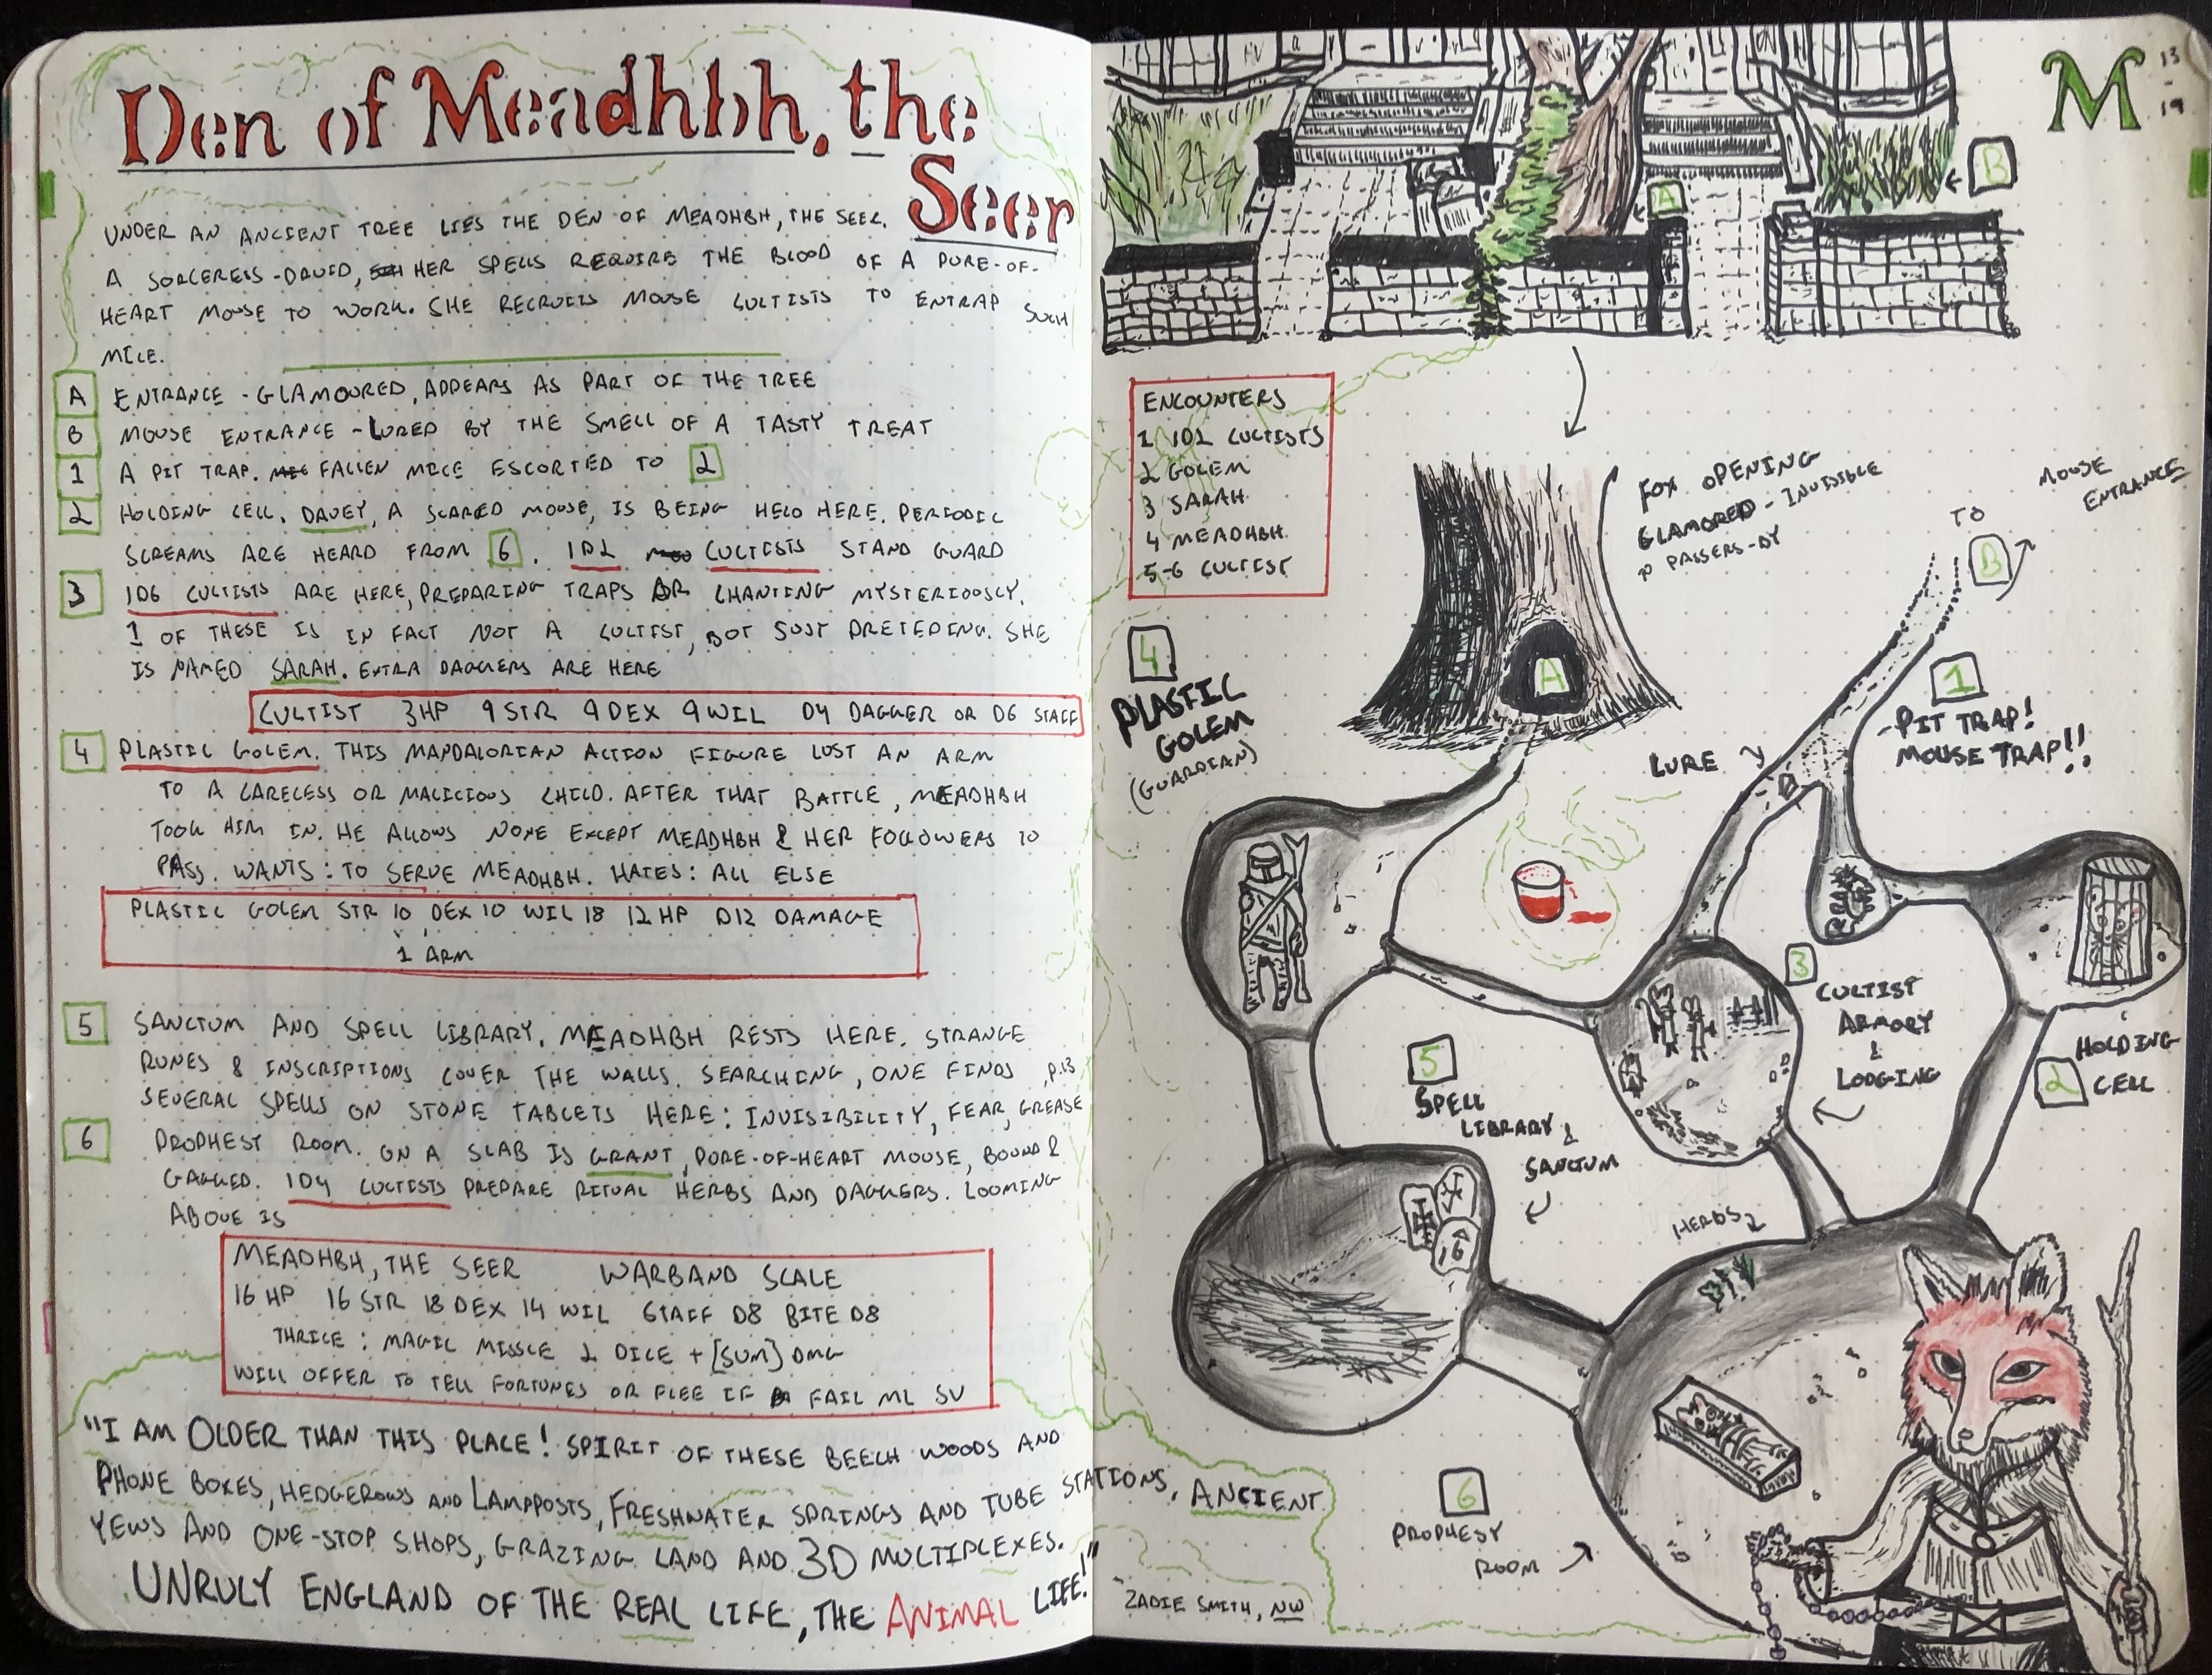 Den of Meadhbh, the
Seer
UNDER AN ANCIENT TREE LIES THE DEN OF MEADHBH, THE SEER.
A SORCERESS-DRUID, HER SPELLS REQUIRE THE BLOOD OF A PURE-OF-
HEART MOUSE TO WORK. SHE RECRUITS MOUSE CULTISTS TO ENTRAP SUCH
MICE.
A ENTRANCE - GLAMOURED, APPEARS AS PART OF THE TREE
B MOUSE ENTRANCE - LURED BY THE SMELL OF A TASTY TREAT
1 A PIT TRAP. FALLEN MICE ESCORTED TO 2
2 HOLDING CELL. DAVEY, A SCARED MOUSE, IS BEING HELD HERE. PERIODIC
SCREAMS ARE HEARD FROM 6. 1D2 CULTISTS STAND GUARD
3 1D6 CULTISTS ARE HERE, PREPARING TRAPS OR CHANTING MYSTERIOUSLY.
1 OF THESE IS IN FACT NOT A CULTIST, BUT JUST PRETEDING. SHE
IS NAMED SARAH. EXTRA DAGGERS ARE HERE
CULTIST 3HP 9 STR 9 DEX 9 WIL D4 DAGGER OR D6 STAFF
4 PLASTIC GOLEM. THIS MANDALORIAN ACTION FIGURE LOST AN ARM
TO A CARELESS OR MALICIOUS CHILD. AFTER THAT BATTLE, MEADHBH
TOOK HIM IN. HE ALLOWS NONE EXCEPT MEADHBH & HER FOLLOWERS TO
PASS. WANTS: TO SERVE MEADHBH. HATES: ALL ELSE
PLASTIC GOLEM STR 10 DEX 10 WIL 18 12 HP D12 DAMAGE
1 ARM
5 SANCTUM AND SPELL LIBRARY. MEADHBH RESTS HERE. STRANGE
RUNES & INSCRIPTIONS COVER THE WALLS. SEARCHING, ONE FINDS p.13
SEVERAL SPELLS ON STONE TABLETS HERE: INVISIBILITY, FEAR, GREASE
6 PROPHESY ROOM. ON A SLAB IS GRANT, PURE-OF-HEART MOUSE, BOUND &
GAGGED. 1D4 CULTISTS PREPARE RITUAL HERBS AND DAGGERS. LOOMING
ABOVE IS
MEADHBH, THE SEER WARBAND SCALE
16 HP 16 STR 18 DEX 14 WIL STAFF D8 BITE D8
THRICE: MAGIC MISSLE 2 DICE + [SUM] DMG
WILL OFFER TO TELL FORTUNES OR FLEE IF FAIL ML SV
"I AM OLDER THAN THIS PLACE! SPIRIT OF THESE BEECH WOODS AND
PHONE BOXES, HEDGEROWS AND LAMPPOSTS, FRESHWATER SPRINGS AND TUBE STATIONS, ANCIENT
YEWS AND ONE-STOP SHOPS, GRAZING LAND AND 3D MULTIPLEXES.
UNRULY ENGLAND OF THE REAL LIFE, THE ANIMAL LIFE!"
ZADIE SMITH, NW
M 13
-
19
B
A
ENCOUNTERS
1 1D2 CULTISTS
2 GOLEM
3 SARAH
4 MEADHBH
5-6 CULTIST
FOX OPENING
GLAMORED - INVISIBLE
TO PASSERS-BY
MOUSE
ENTRANCE
TO
B
A
4
PLASTIC
GOLEM
(GUARDIAN)
1
-PIT TRAP!
MOUSE TRAP!!
LURE
3
CULTIST
ARMORY
&
LODGING
HOLDING
2 CELL
5
SPELL
LIBRARY &
SANCTUM
HERBS
6
PROPHESY
ROOM